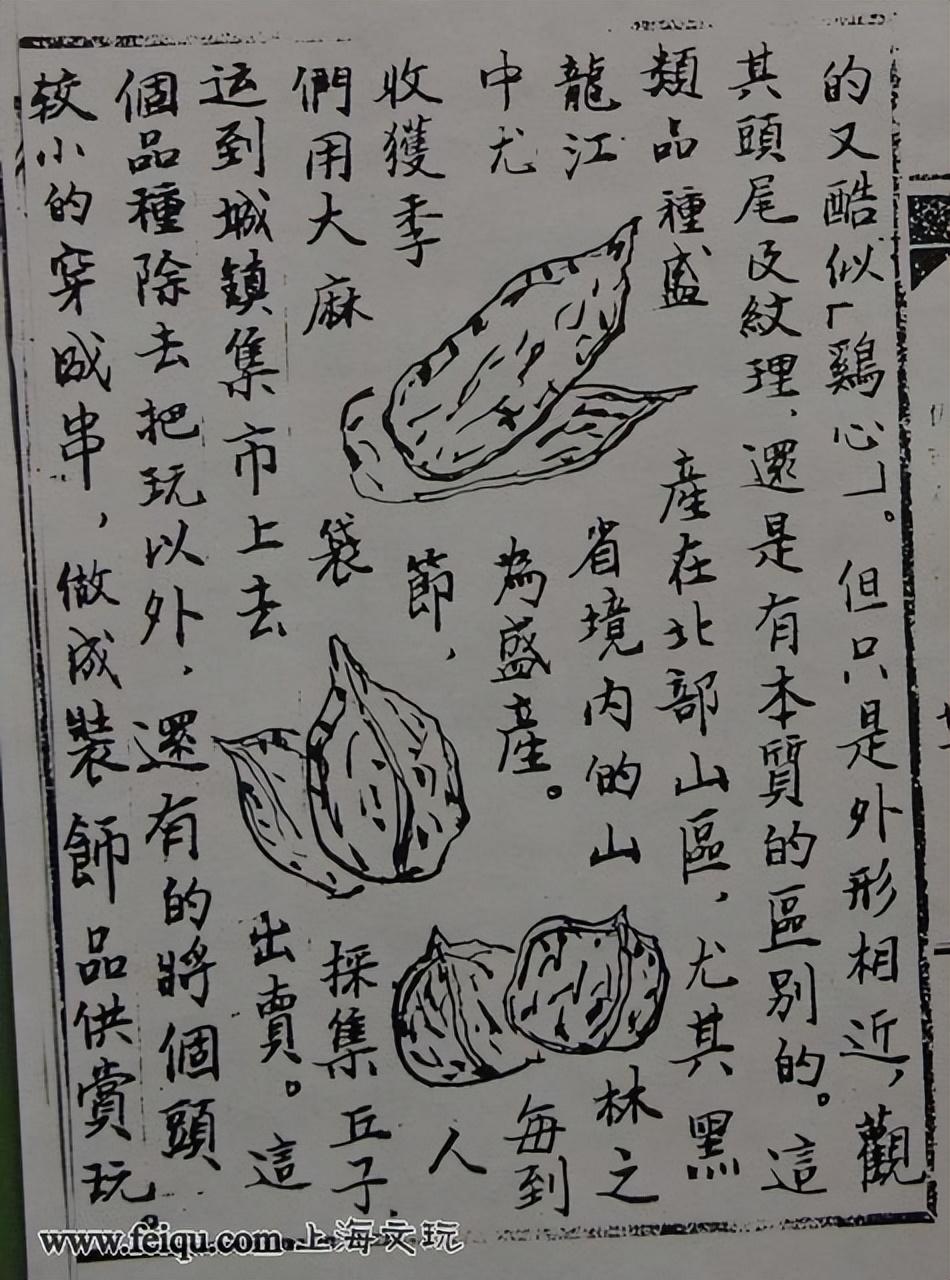 的又酷似「鷄心」。但只是外形相近，觀
其頭尾及紋理，還是有本質的區别的。這
類品種盛産在北部山區，尤其黑
龍江省境内的山林之
中尤為盛産。每到
收獲季節，人
們用大麻袋採集丘子，
运到城鎮集市上去出賣。這
個品種除去把玩以外，還有的將個頭
较小的穿成串，做成裝飾品供賞玩。
www.feiqu.com上海文玩